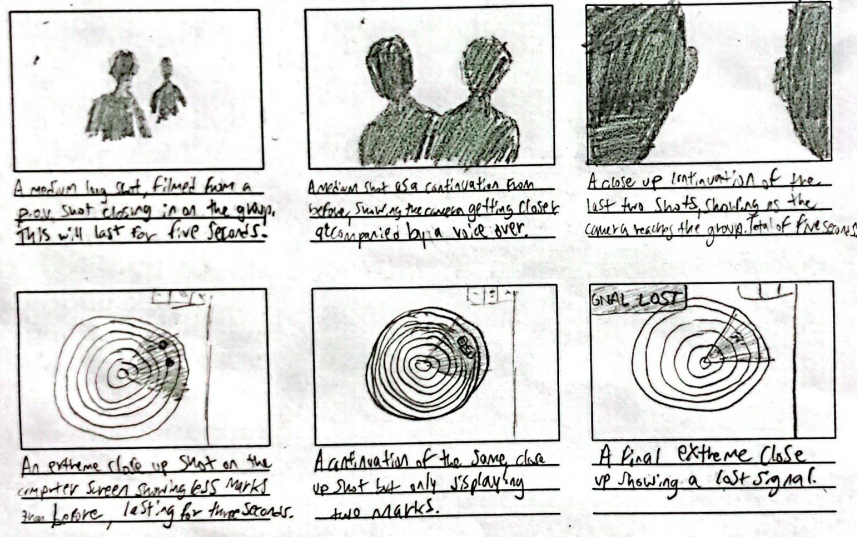 A medium long shot, filmed from a
P.O.V. shot closing in on the group.
This will last for five seconds.
A medium shot as a continuation from
before, showing the camera getting closer
accompanied by a voice over.
A close up continuation of the
last two shots, showing as the
camera reaches the group. Total of five seconds
GNAL LOST
An extreme close up shot on the
computer screen showing less marks
than before, lasting for three seconds.
A continuation of the same, close
up shot but only displaying
two marks.
A final extreme close
up showing a lost signal.